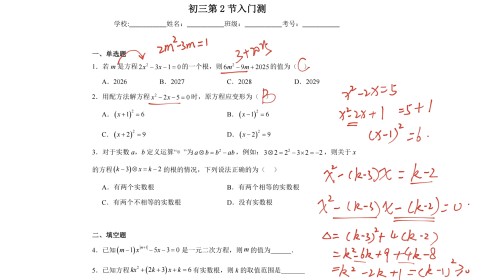 初三第 2 节入门测
学校:__________姓名:__________班级:__________考号:__________
2m²-3m=1
3+2025
一、单选题
1. 若 m 是方程 2x²-3x-1=0 的一个根，则 6m²-9m+2025 的值为( C )
A. 2026 B. 2027 C. 2028 D. 2029
2. 用配方法解方程 x²-2x-5=0 时，原方程应变形为( B )
A. (x+1)²=6 B. (x-1)²=6
C. (x+2)²=9 D. (x-2)²=9
x²-2x=5
x²-2x+1=5+1
(x-1)²=6.
3. 对于实数 a，b 定义运算“⊗”为 a⊗b=b²-ab，例如：3⊗2=2²-3×2=-2，则关于 x
的方程 (k-3)⊗x=k-2 的根的情况，下列说法正确的为( )
A. 有两个实数根 B. 有两个相等的实数根
C. 有两个不相等的实数根 D. 没有实数根
x²-(k-3)x=k-2
x²-(k-3)x-(k-2)=0.
Δ=(k-3)²+4(k-2)
=k²-6k+9+4k-8
=k²-2k+1=(k-1)²≥0
二、填空题
4. 已知
是一元二次方程，则 m 的值为______.
5. 已知方程 kx²+(2k+3)x+k=6 有实数根，则 k 的取值范围是